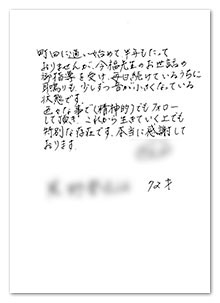 町田に通い始めて半年もたって
おりませんが、今福先生のお世話の
御指導を受け、毎日続けているうちに
耳鳴りも、少しずつ音が小さくなっている
状態です。
色々な事で(精神的)でもフォロー
して頂き!これから生きていく上でも
特別な存在です。本当に感謝して
おります。
72才